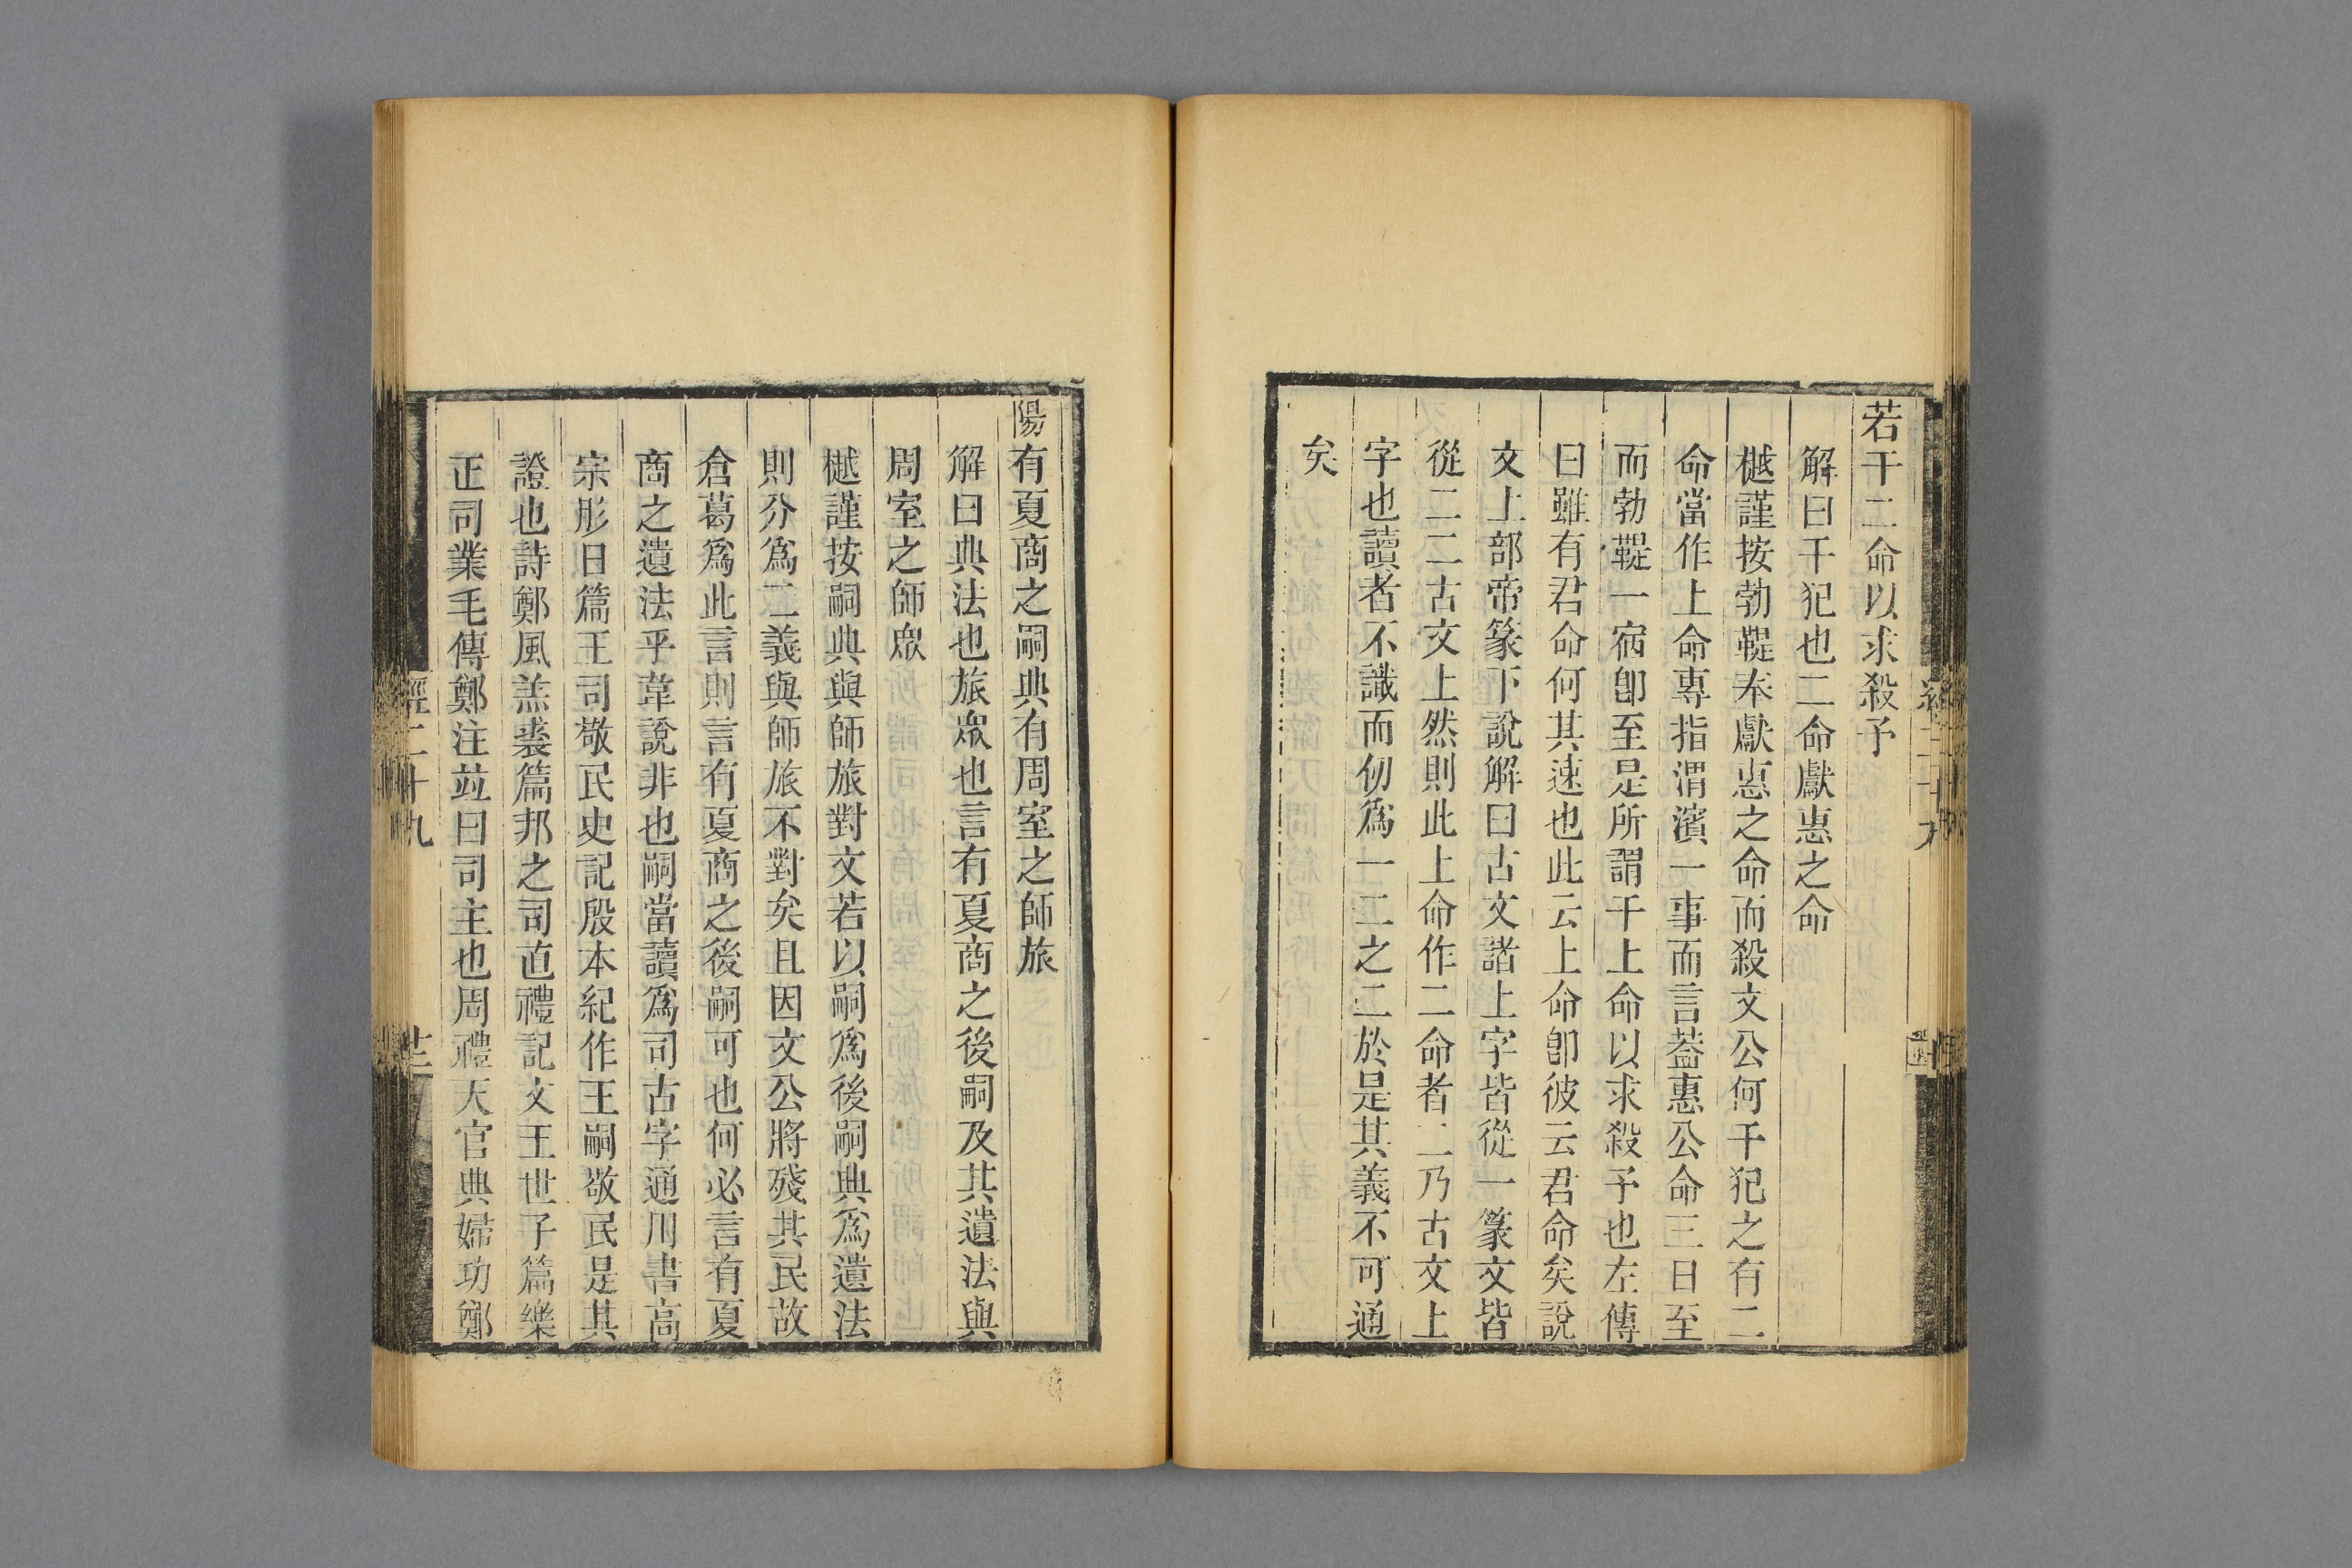 若干二命以求殺予
解曰干犯也二命獻惠之命
樾謹按勃鞮奉獻惠之命而殺文公何干犯之有二
命當作上命專指渭濱一事而言葢惠公命三日至
而勃鞮一宿卽至是所謂干上命以求殺予也左傳
曰雖有君命何其速也此云上命卽彼云君命矣說
文上部帝篆下說解曰古文諸上字皆從一篆文皆
從二二古文上然則此上命作二命者二乃古文上
字也讀者不識而仞爲一二之二於是其義不可通
矣
陽有夏商之嗣典有周室之師旅
解曰典法也旅衆也言有夏商之後嗣及其遺法與
周室之師衆
樾謹按嗣典與師旅對文若以嗣爲後嗣典爲遺法
則分爲二義與師旅不對矣且因文公將殘其民故
倉葛爲此言則言有夏商之後嗣可也何必言有夏
商之遺法乎韋說非也嗣當讀爲司古字通用書高
宗肜日篇王司敬民史記殷本紀作王嗣敬民是其
證也詩鄭風羔裘篇邦之司直禮記文王世子篇樂
正司業毛傳鄭注竝曰司主也周禮天官典婦功鄭
經二十九